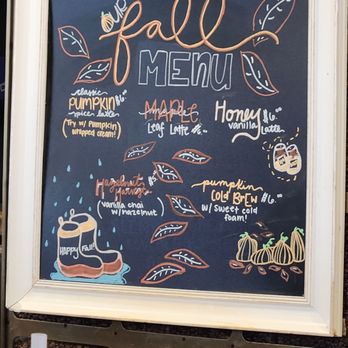 our
fall
MENU
classic
PUMPKIN $6.00
spice latte
(Try w/ Pumpkin
whipped cream!)
MAPLE
maple
Leaf Latte $6.00
Honey $6.00
vanilla Latte
Hazelnut
Harvest $6.00
(vanilla chai
w/hazelnut)
pumpkin
COLD BREW $6.00
w/ sweet cold
foam!
HAPPY Fall!